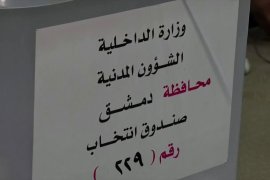 وزارة الداخلية
الشؤون المدنية
محافظة دمشق
صندوق انتخاب
رقم ( ٢٢٩ )